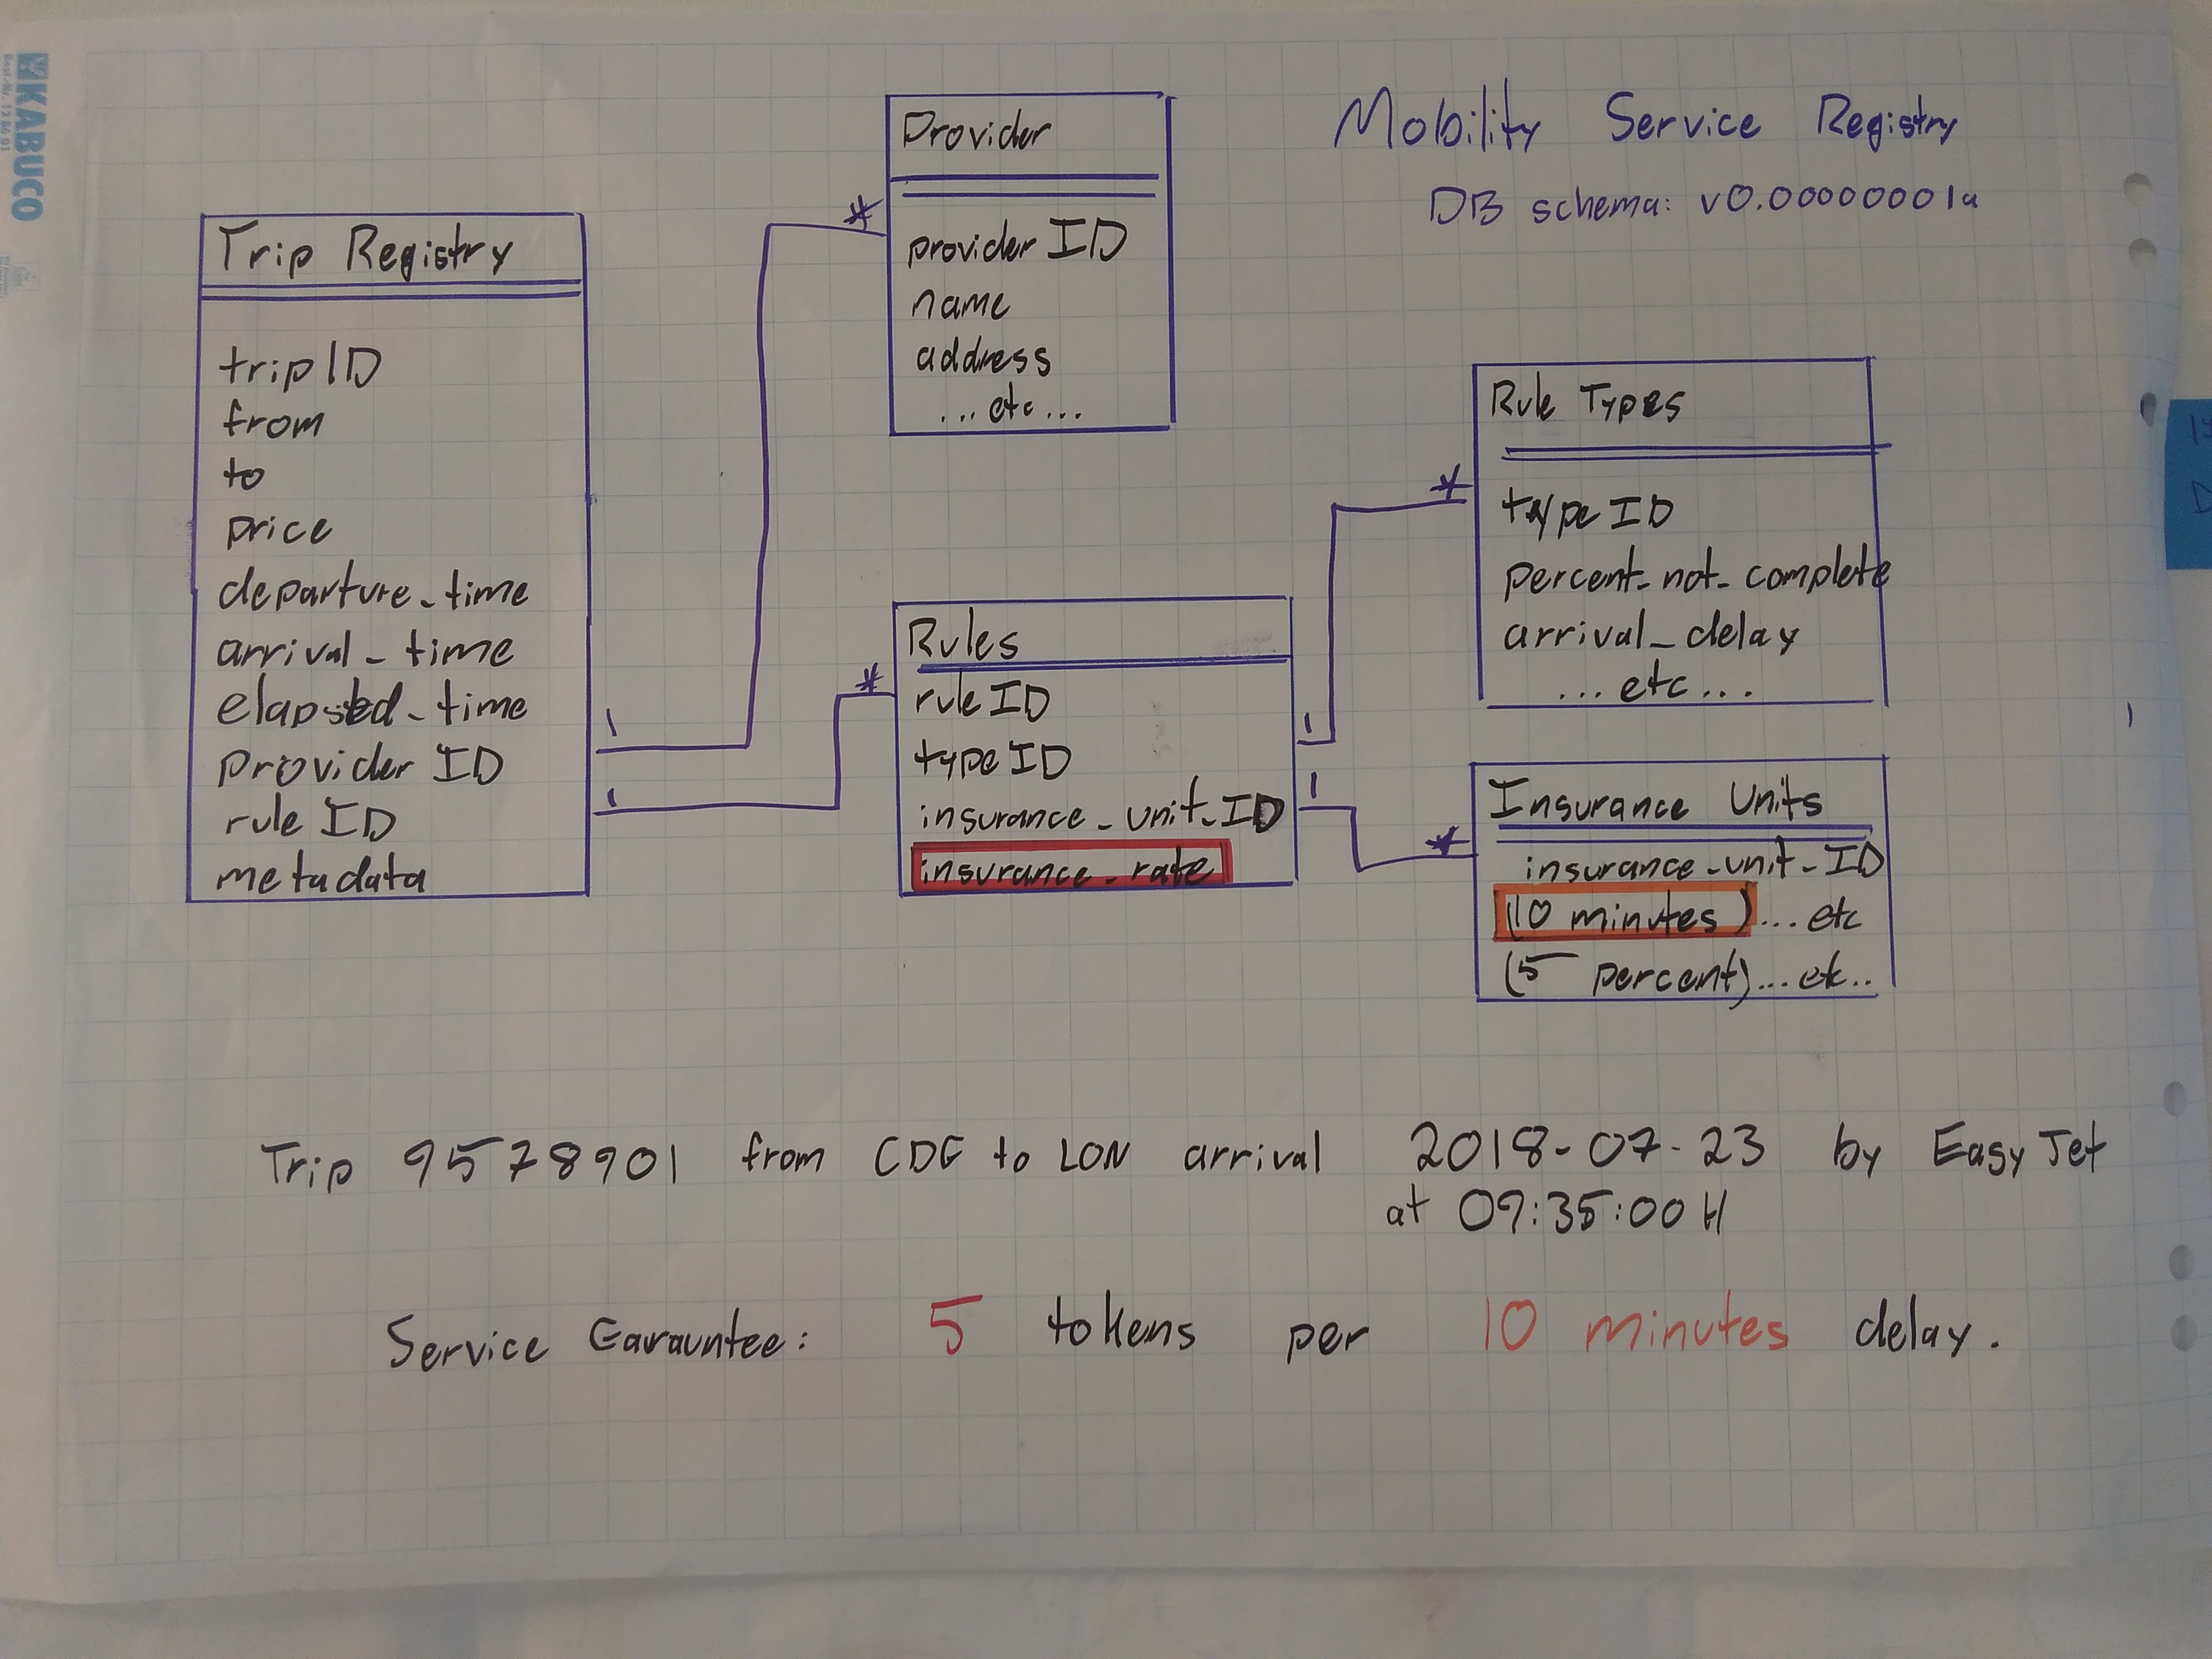 KABUCO
Mobility Service Registry
DB schema: v0.00000001a
Trip Registry
tripID
from
to
price
departure_time
arrival_time
elapsted_time
provider ID
rule ID
metadata
1
1
Provider
provider ID
name
address
...etc...
*
Rules
rule ID
type ID
insurance_unit_ID
insurance_rate
*
1
1
Rule Types
type ID
percent_not_complete
arrival_delay
...etc...
*
Insurance Units
insurance_unit_ID
(10 minutes)...etc
(5 percent)...etc..
*
Trip 9578901 from CDG to LON arrival 2018-07-23 by EasyJet
at 09:35:00H
Service Garauntee: 5 tokens per 10 minutes delay.